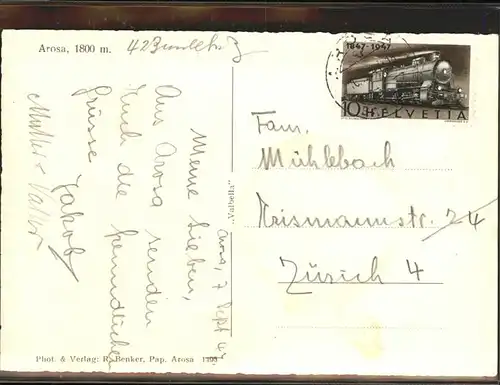 Arosa, 1800 m.
1847-1947
10 HELVETIA
Arosa, 7 Sept 47
Meine Lieben,
Aus Arosa senden
Euch die freundlichen
Grüsse
Jakob
Mutter + Vater
Fam.
Mühlebach
Krismannstr. 24
Zürich 4
„Valbella"
Phot. & Verlag: R. Benker, Pap. Arosa 1295